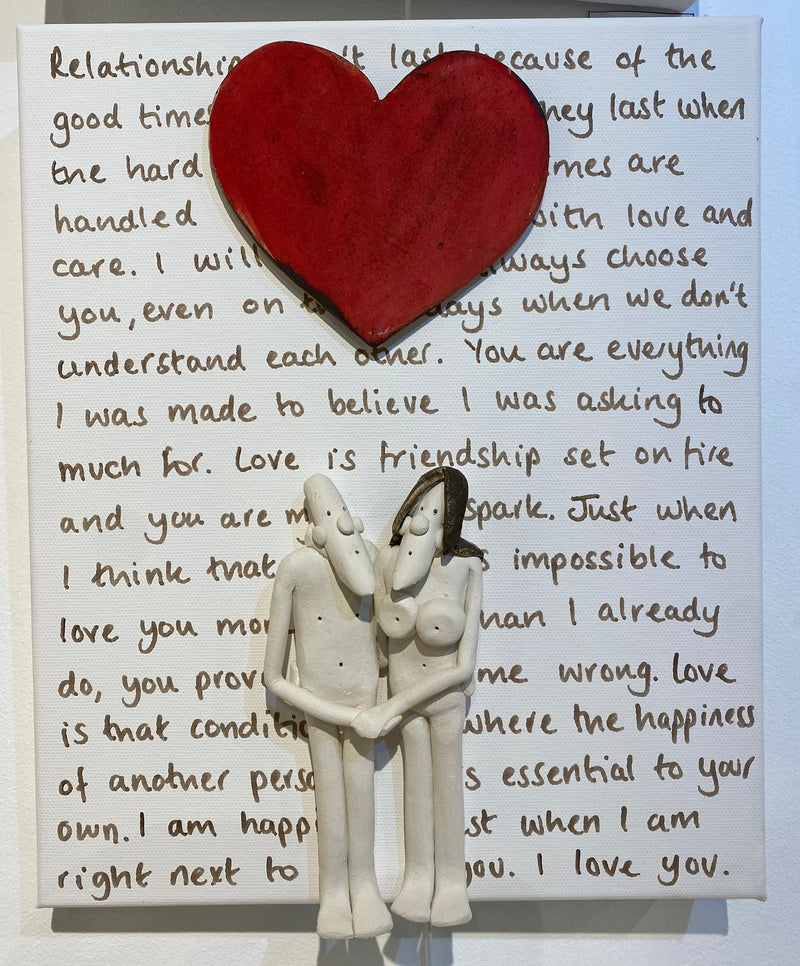 Relationship last because of the
good times they last when
the hard times are
handled with love and
care. I will always choose
you, even on days when we don't
understand each other. You are everything
I was made to believe I was asking to
much for. Love is friendship set on fire
and you are spark. Just when
I think that impossible to
love you more than I already
do, you prove me wrong. Love
is that condition where the happiness
of another person essential to your
own. I am when I am
right next to you. I love you.